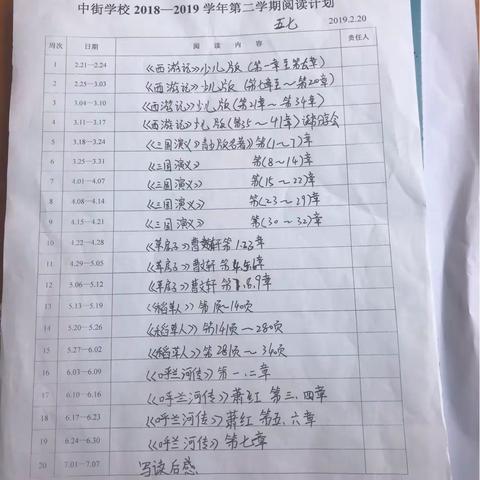 中街学校 2018—2019 学年第二学期阅读计划
五七 2019.2.20
周次 日期 阅 读 内 容 责任人
1 2.21—2.24 《西游记》少儿版(第一章至第六章)
2 2.25—3.03 《西游记》少儿版(第七章至~第20章)
3 3.04—3.10 《西游记》少儿版(第21章~第34章)
4 3.11—3.17 《西游记》少儿版(第35~41章)读书分享会
5 3.18—3.24 《三国演义》青少版名著》第(1~7)章
6 3.25—3.31 《三国演义》 第(8~14)章
7 4.01—4.07 《三国演义》 第(15~22)章
8 4.08—4.14 《三国演义》 第(23~29)章
9 4.15—4.21 《三国演义》 第(30~32)章
10 4.22—4.28 《草房子》曹文轩 第1.2.3章
11 4.29—5.05 《草房子》曹文轩 第4.5.6章
12 5.06—5.12 《草房子》曹文轩 第7.8.9章
13 5.13—5.19 《稻草人》第1页~140页
14 5.20—5.26 《稻草人》第141页~280页
15 5.27—6.02 《稻草人》第281页~340页
16 6.03—6.09 《呼兰河传》第一.二章
17 6.10—6.16 《呼兰河传》萧红 第三.四章
18 6.17—6.23 《呼兰河传》萧红 第五.六章
19 6.24—6.30 《呼兰河传》第七章
20 7.01—7.07 写读后感